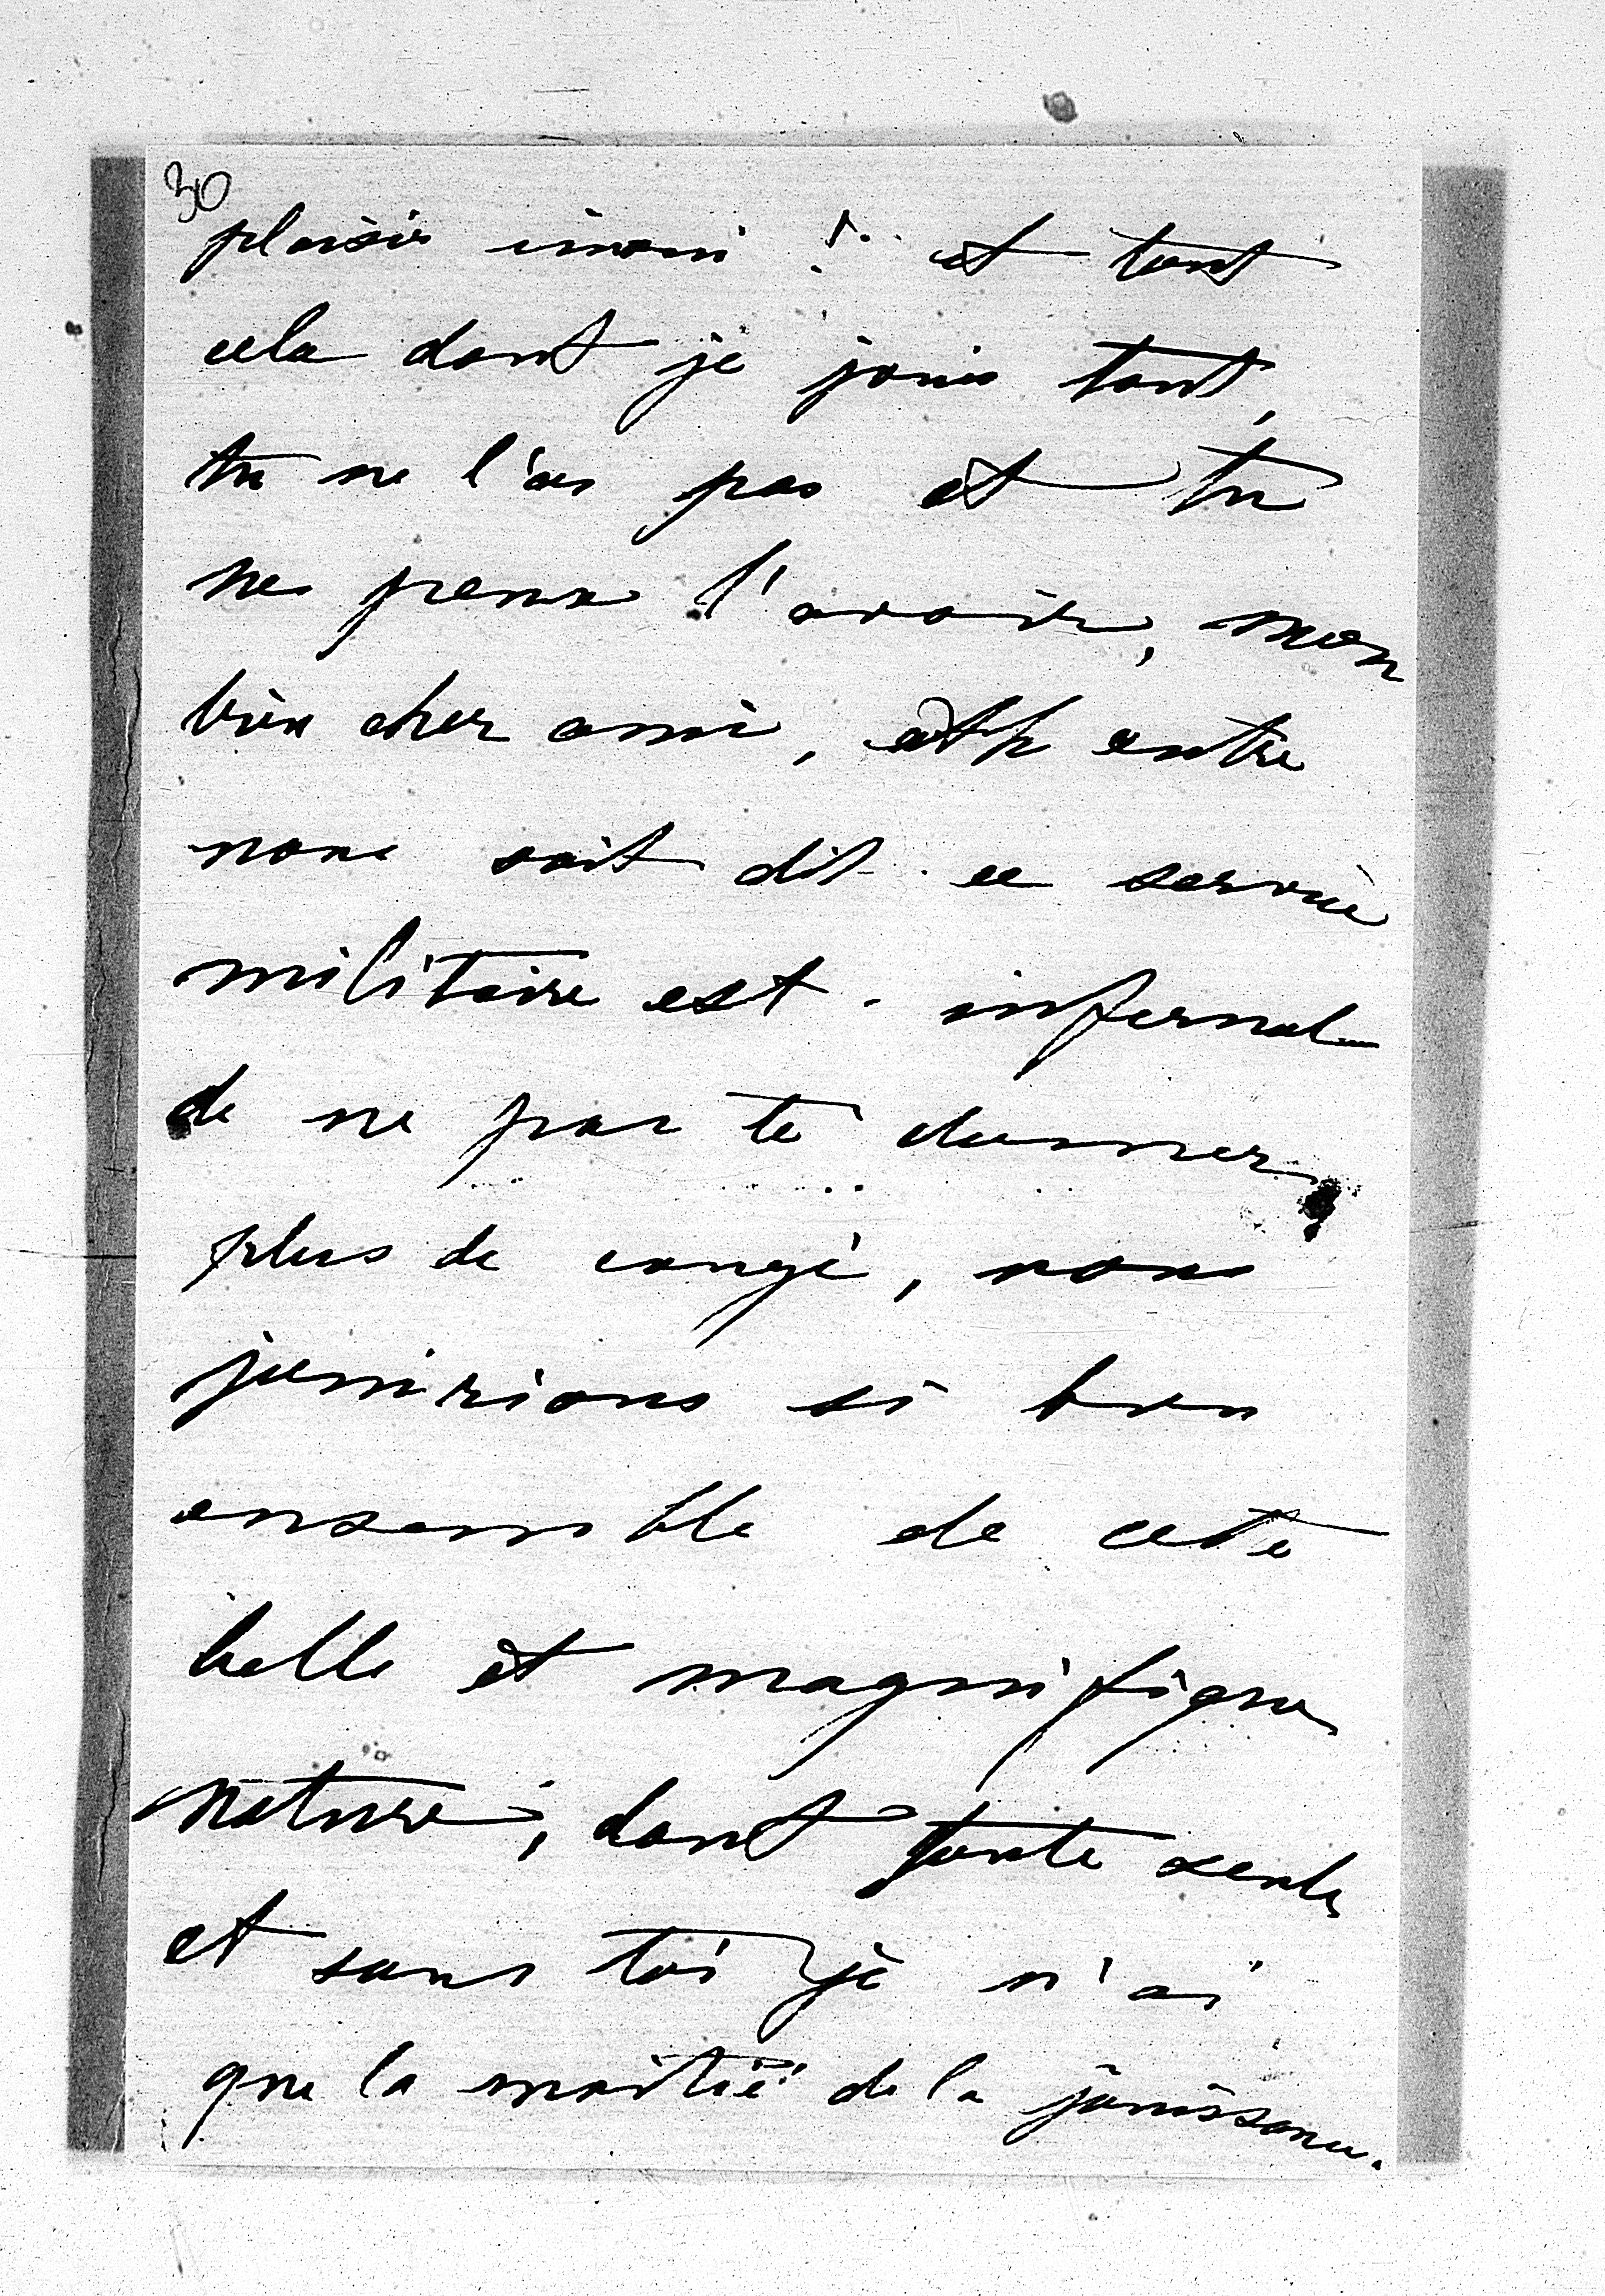 30
plaisir inoui ! et tout
cela dont je jouis tant,
tu ne l'as pas et tu
ne peux l'avoir, mon
bien cher ami, entre
nous soit dit ce service
militaire est infernal
de ne pas te donner
plus de congé, nous
jouirions si bien
ensemble de cette
belle et magnifique
nature, dont toute seule
et sans toi je n'ai
que la moitié de la jouissance.